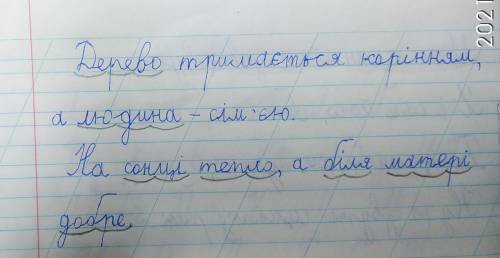 Дерево тримається корінням,
а людина - сім'єю.
На сонці тепло, а біля матері
добре.
2021